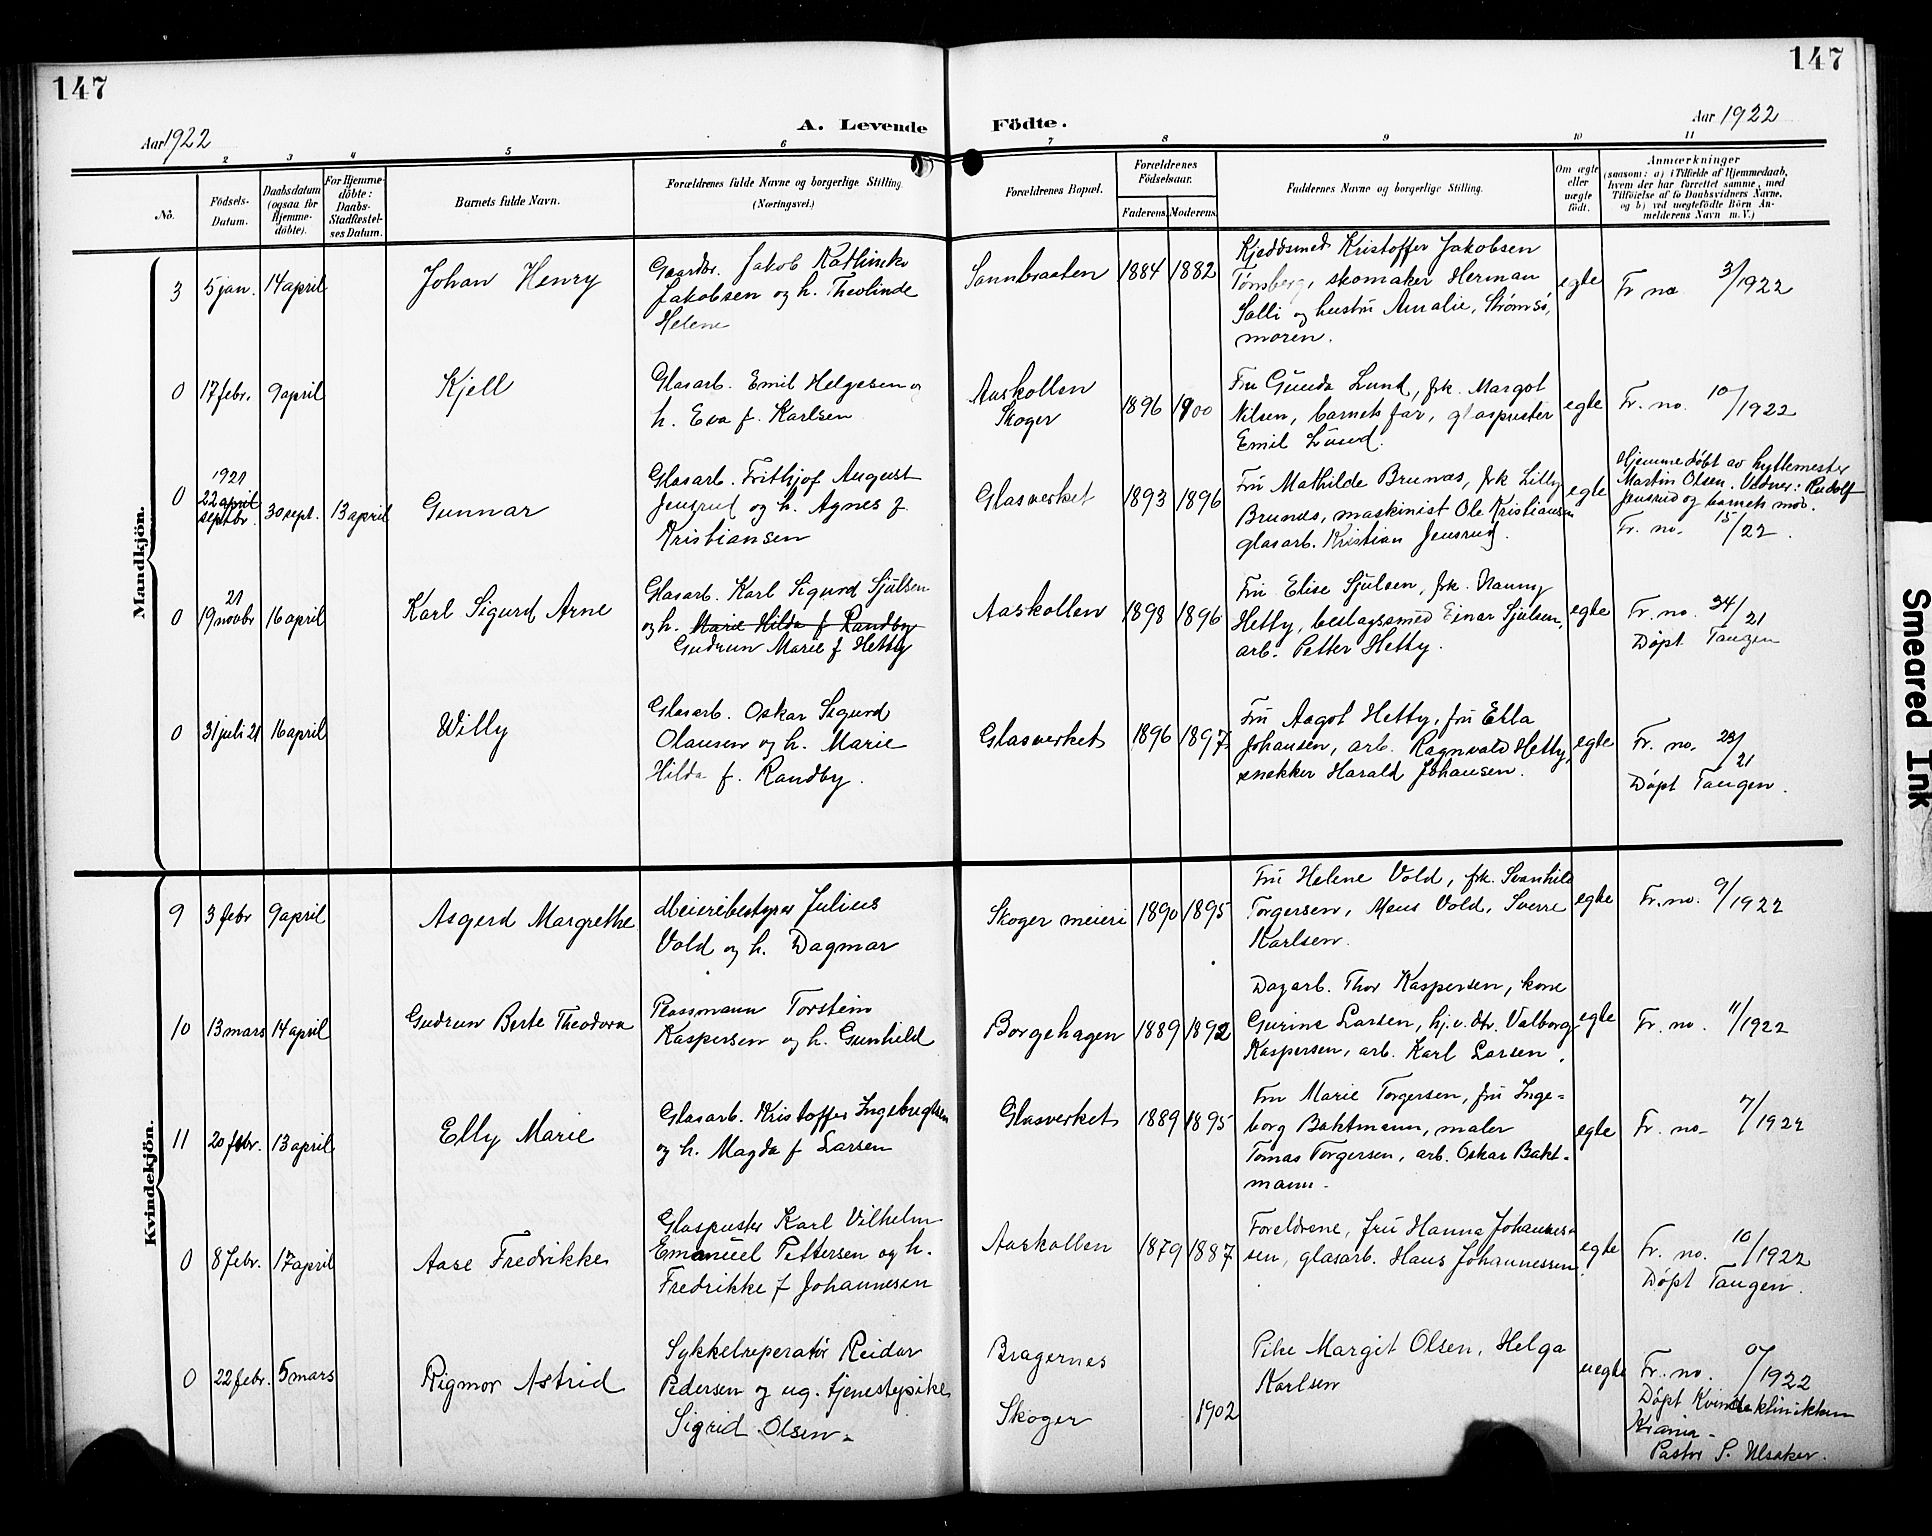 147
147
Aar 1922
A. Levende Födte.
Aar 1922
2 3 4 5 6 7 8 9 10 11
No.
Födsels-Datum.
Daabsdatum (ogsaa for Hjemme-döbte).
For Hjemme-döbte: Daabs-Stadfæstel-ses Datum.
Barnets fulde Navn.
Forældrenes fulde Navne og borgerlige Stilling
(Næringsvei.)
Forældrenes Bopæl.
Forældrenes Födselsaar.
Faderens. Moderens.
Faddernes Navne og borgerlige Stilling.
Om ægte eller uægte födt.
Anmærkninger
(saasom: a) i Tilfælde af Hjemmedaab,
hvem der har forrettet samme, med
Tilföielse af to Daabsvidners Navne,
og b) ved uægtefödte Börn An-
melderens Navn m. V.)
Mandkjön.
3 5 jan. 14 april Johan Henry
Gaardbr. Jakob
Jakobsen og h. Theolinde
Helene
Sannbraaten 1884 1882
Kjeddsmed Kristoffer Jakobsen
Tønsberg, skomaker Herman
Salli og hustru Amalie, Strømsø,
moren.
egte
Fr no 3/1922
0 17 febr. 9 april Kjell
Glasarb. Emil Helgesen og
h. Eva f. Karlsen
Aaskollen
Skoger
1896 1900
Fru Gunda Lund, frk. Margot
Nilsen, barnets far, glaspuster
Emil Lund.
egte
Fr. no. 10/1922
0 1921
22 april
septbr. 30 sept. 13 april Gunnar
Glasarb. Frithjof August
Jensrud og h. Agnes f.
Kristiansen
Glasverket 1893 1896
Fru Mathilde Brunæs, frk Lilly
Brunæs, maskinist Ole Kristiansen
glasarb. Kristian Jensrud.
egte
Hjemmedøbt av hyttemester
Martin Olsen. Vidner: Rudolf
Jensrud og barnets mor.
Fr. no. 15/22.
0 21
19 novbr 16 april Karl Sigurd Arne
Glasarb. Karl Sigurd Sjulsen
og h. Marie Hilda f Randby
Gudrun Marie f Hetty
Aaskollen 1898 1896
Fru Elise Sjulsen, frk. Nanny
Hetty, beslagssmed Einar Sjulsen,
arb. Petter Hetty.
egte
Fr. no. 34/21
Døpt Tangen
0 31 juli 21 16 april Willy
Glasarb. Oskar Sigurd
Olausen og h. Marie
Hilda f. Randby.
Glasverket 1896 1897
Fru Aagot Hetty, fru Ella
Johansen, arb. Ragnvald Hetty,
snekker Harald Johansen.
egte
Fr. no. 23/21
Døpt Tangen.
Kvindekjön.
9 3 febr 9 april Asgerd Margrethe
Meieribestyrer Julius
Vold og h. Dagmar
Skoger meieri 1890 1895
Fru Helene Vold, frk. Svanhild
Torgersen, Mens Vold, Sverre
Karlsen.
egte
Fr. no. 9/1922
10 13 mars 14 april Gudrun Berte Theodora
Plassmann Torstein
Kaspersen og h. Gunhild
Borgehagen 1889 1892
Dagarb. Thor Kaspersen, kone
Gurine Larsen, hj.v. dtr. Valborg
Kaspersen, arb. Karl Larsen.
egte
Fr. no. 11/1922
11 20 febr. 13 april Elly Marie
Glasarb. Kristoffer Ingebregtsen
og h. Magda f Larsen
Glasverket 1889 1895
Fru Marie Torgersen, fru Inge-
borg Baktmann, maler
Tomas Torgersen, arb. Oskar Bakt-
mann.
egte
Fr. no. 7/1922
0 8 febr. 17 april Aase Fredrikke
Glaspuster Karl Vilhelm
Emanuel Pettersen og h.
Fredrikke f Johannesen
Aaskollen 1879 1887
Foreldrene, fru Hanna Johannes-
sen, glasarb. Hans Johannessen.
egte
Fr. no. 10/1922
Døpt Tangen.
0 22 febr. 5 mars Rigmor Astrid
Sykkelreperatør Reidar
Pedersen og ug. tjenestepike
Sigrid Olsen.
Bragernes
Skoger
1902
Pike Margit Olsen, Helga
Karlsen
uegte
Fr. no. 0/1922
Døpt Kvindeklinikken
Kr.ania.
Pastor S. Ulsaker.
Smeared Ink